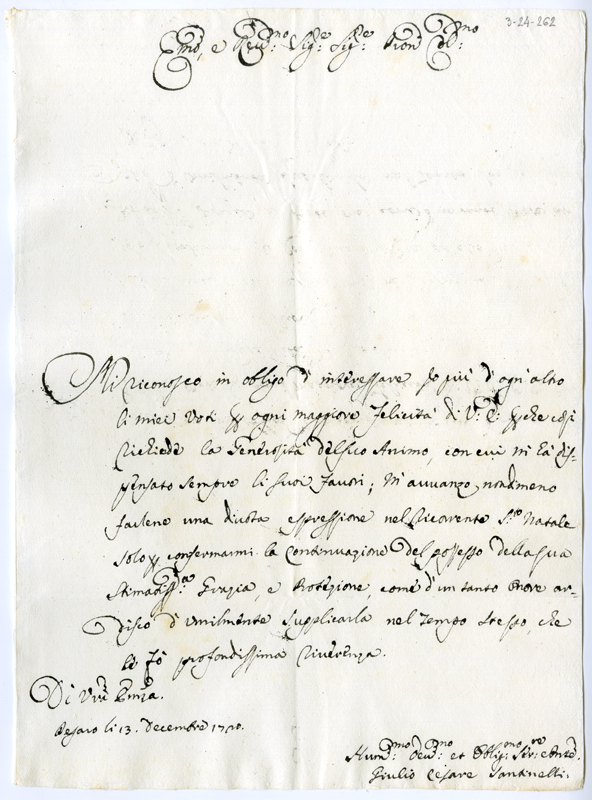 3-24-262
Emo, e Revmo Sigre Sigre Pron Colmo:
Mi riconosco in obligo d'interessare Io più d'ogn'altro
li miei Voti per ogni maggiore felicità di V: E: perche così
richiede la Generosità del suo Animo, con cui mi hà dis-
pensato sempre li suoi favori; M'avvanzo nondimeno
farlene una divota espressione nel ricorrente Sto Natale
solo per confermarmi la Continuazione del possesso della sua
Stimatissma Grazia, e Protezione, come d'un tanto Onore ar-
disco d'umilmente supplicarla nel tempo stesso, che
le fò profondissima riverenza.
Di Vra Emza.
Pesaro li 13. Decembre
Humo Devmo et Obligmo Serre
Giulio Cesare Santinelli.